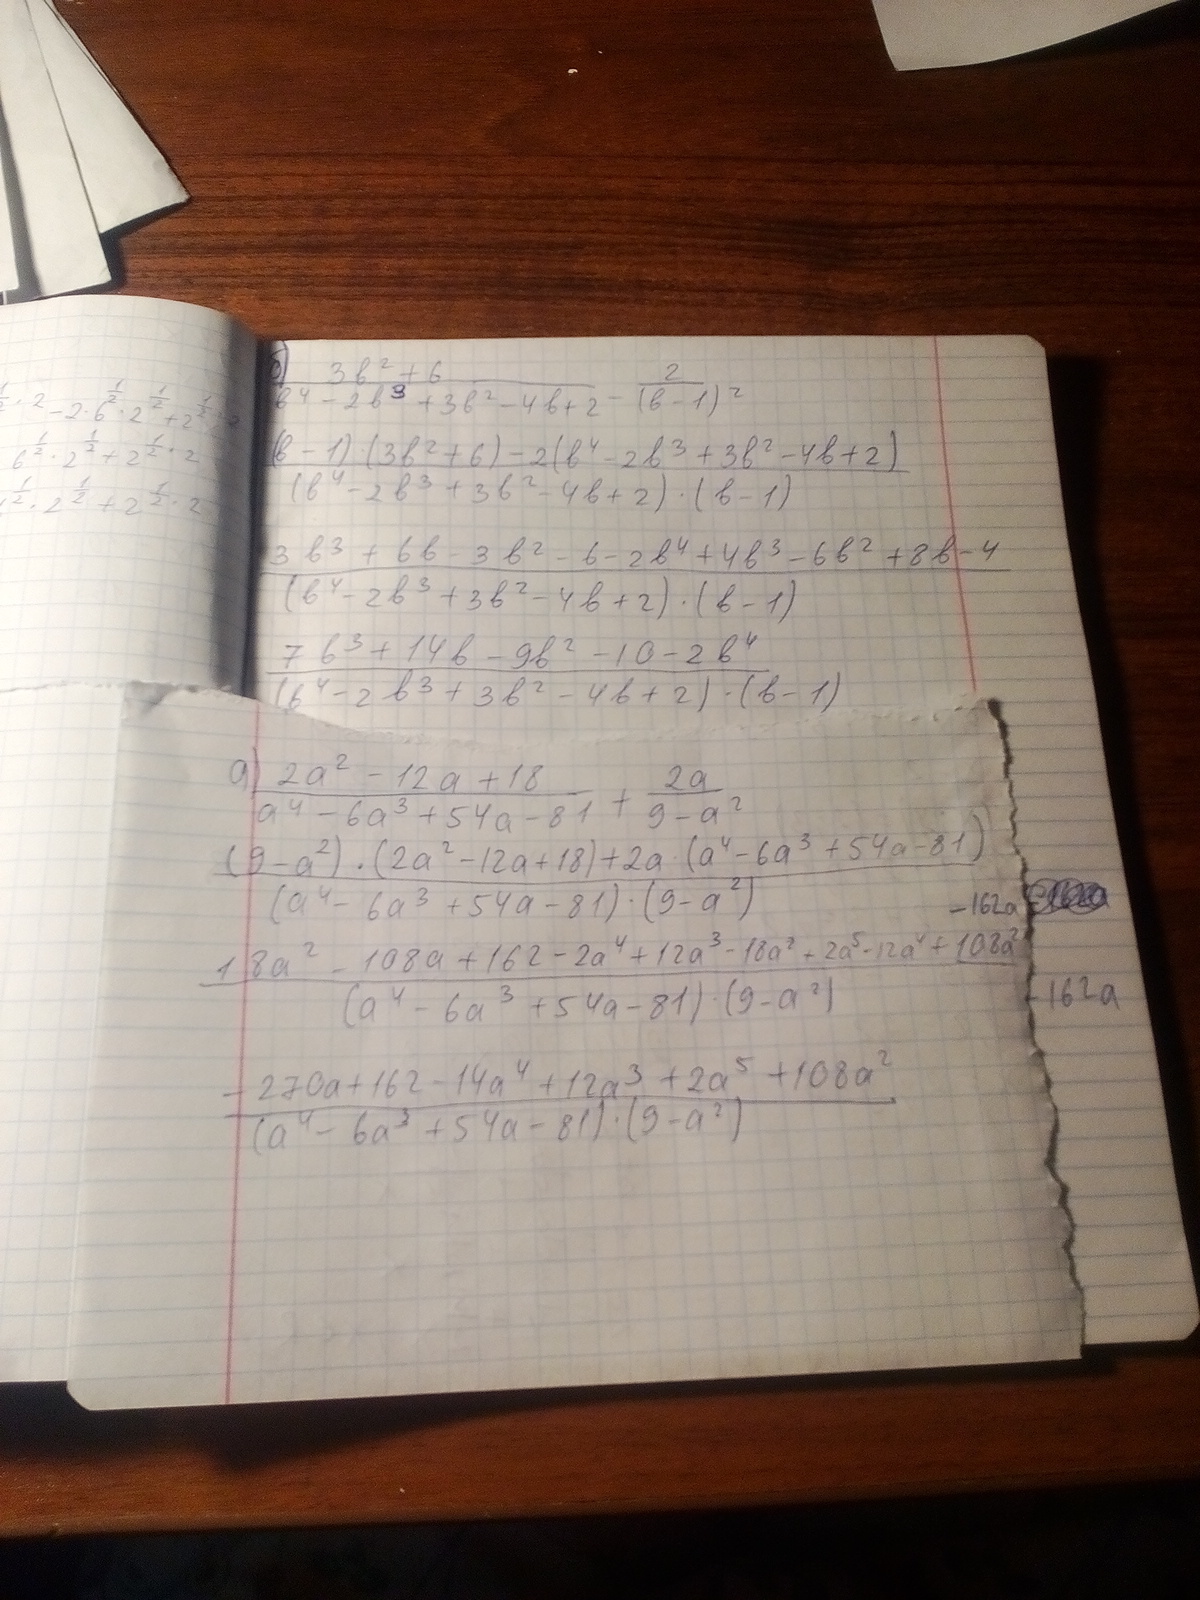 ½ · 2 - 2 · 6^½ · 2^½ + 2^½ · 2
6^½ · 2^½ + 2^½ · 2
^½ · 2^½ + 2^½ · 2
б) (3b² + 6)/(b⁴ - 2b³ + 3b² - 4b + 2) - 2/(b - 1)²
((b - 1) · (3b² + 6) - 2(b⁴ - 2b³ + 3b² - 4b + 2))/((b⁴ - 2b³ + 3b² - 4b + 2) · (b - 1))
(3b³ + 6b - 3b² - 6 - 2b⁴ + 4b³ - 6b² + 8b - 4)/((b⁴ - 2b³ + 3b² - 4b + 2) · (b - 1))
(7b³ + 14b - 9b² - 10 - 2b⁴)/((b⁴ - 2b³ + 3b² - 4b + 2) · (b - 1))
а) (2a² - 12a + 18)/(a⁴ - 6a³ + 54a - 81) + 2a/(9 - a²)
((9 - a²) · (2a² - 12a + 18) + 2a · (a⁴ - 6a³ + 54a - 81))/((a⁴ - 6a³ + 54a - 81) · (9 - a²))
-162a
(18a² - 108a + 162 - 2a⁴ + 12a³ - 18a² + 2a⁵ - 12a⁴ + 108a²)/((a⁴ - 6a³ + 54a - 81) · (9 - a²))
-162a
(-270a + 162 - 14a⁴ + 12a³ + 2a⁵ + 108a²)/((a⁴ - 6a³ + 54a - 81) · (9 - a²))